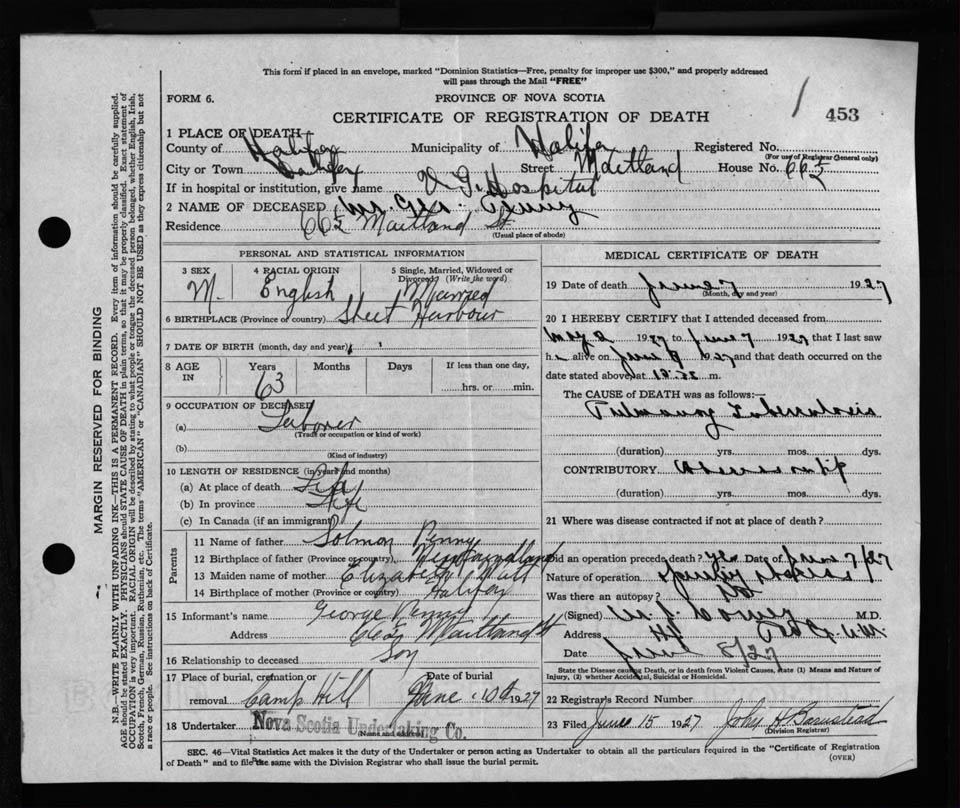 This form if placed in an envelope, marked "Dominion Statistics—Free, penalty for improper use $300," and properly addressed
will pass through the Mail "FREE"
FORM 6.
PROVINCE OF NOVA SCOTIA
453
CERTIFICATE OF REGISTRATION OF DEATH
1 PLACE OF DEATH
County of Halifax Municipality of Halifax Registered No.
(For use of Registrar General only)
City or Town Halifax Street Maitland House No. 66½
If in hospital or institution, give name V G Hospital
2 NAME OF DECEASED Mr. Geo. Penny
Residence 66½ Maitland St
(Usual place of abode)
PERSONAL AND STATISTICAL INFORMATION
3 SEX 4 RACIAL ORIGIN 5 Single, Married, Widowed or
Divorced (Write the word)
M. English Married
6 BIRTHPLACE (Province or country) Sheet Harbour
7 DATE OF BIRTH (month, day and year)
8 AGE IN Years Months Days If less than one day,
63 hrs. or min.
9 OCCUPATION OF DECEASED
(a) Laborer
(Trade or occupation or kind of work)
(b)
(Kind of industry)
10 LENGTH OF RESIDENCE (in years and months)
(a) At place of death Life
(b) In province Life
(c) In Canada (if an immigrant)
Parents
11 Name of father Solmon Penny
12 Birthplace of father (Province or country) Newfoundland
13 Maiden name of mother Elizabeth
14 Birthplace of mother (Province or country) Halifax
15 Informant's name George Penny
Address Maitland St
16 Relationship to deceased Son
17 Place of burial, cremation or Date of burial
removal Camp Hill June 10th 1927
18 Undertaker Nova Scotia Undertaking Co.
(Name and address)
MEDICAL CERTIFICATE OF DEATH
19 Date of death June 7 1927
(Month, day and year)
20 I HEREBY CERTIFY that I attended deceased from
May 2 1927 to June 7 1927 that I last saw
h alive on June 1927 and that death occurred on the
date stated above, at m.
The CAUSE OF DEATH was as follows:—
Pulmonary Tuberculosis
(duration) yrs. mos. dys.
CONTRIBUTORY
(duration) yrs. mos. dys.
21 Where was disease contracted if not at place of death?
Did an operation precede death? yes Date of June 7/27
Nature of operation
Was there an autopsy? No
(Signed) M.D.
Address
Date June 8/27
State the Disease causing Death, or in death from Violent Causes, state (1) Means and Nature of
Injury, (2) whether Accidental, Suicidal or Homicidal.
22 Registrar's Record Number
23 Filed June 15 1927 John H Barnstead
(Division Registrar)
SEC. 46—Vital Statistics Act makes it the duty of the Undertaker or person acting as Undertaker to obtain all the particulars required in the "Certificate of Registration
of Death" and to file the same with the Division Registrar who shall issue the burial permit.
(OVER)
MARGIN RESERVED FOR BINDING
N.B.—WRITE PLAINLY WITH UNFADING INK—THIS IS A PERMANENT RECORD. Every item of information should be carefully supplied.
AGE should be stated EXACTLY. PHYSICIANS should STATE CAUSE OF DEATH in plain terms, so that it may be properly classified. Exact statement of
OCCUPATION is very important. RACIAL ORIGIN will be described by stating to what people or tongue the deceased person belonged, whether English, Irish,
Scotch, French, German, Russian, Ruthenian, etc. The terms "AMERICAN" or "CANADIAN" SHOULD NOT BE USED as they express citizenship but not
a race or people. See instructions on back of Certificate.